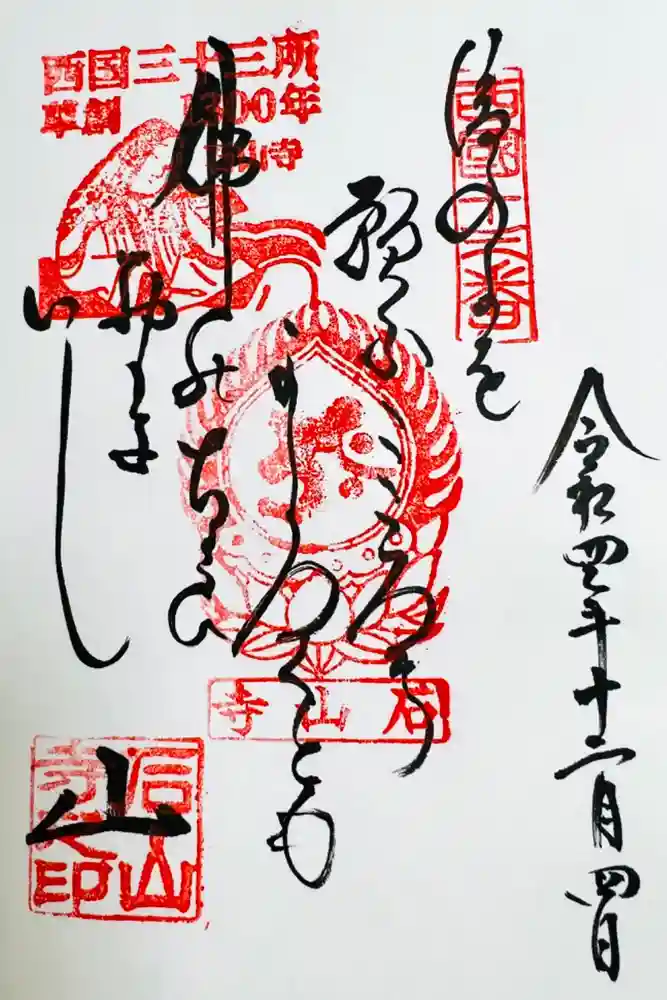 令和四年十二月四日
西国十三番
後のよを
願ふこゝろは
かろくとも
佛のちかひ
おもき
いし
山
西国三十三所
草創 1300年
石山寺
石山寺
石山
寺之印